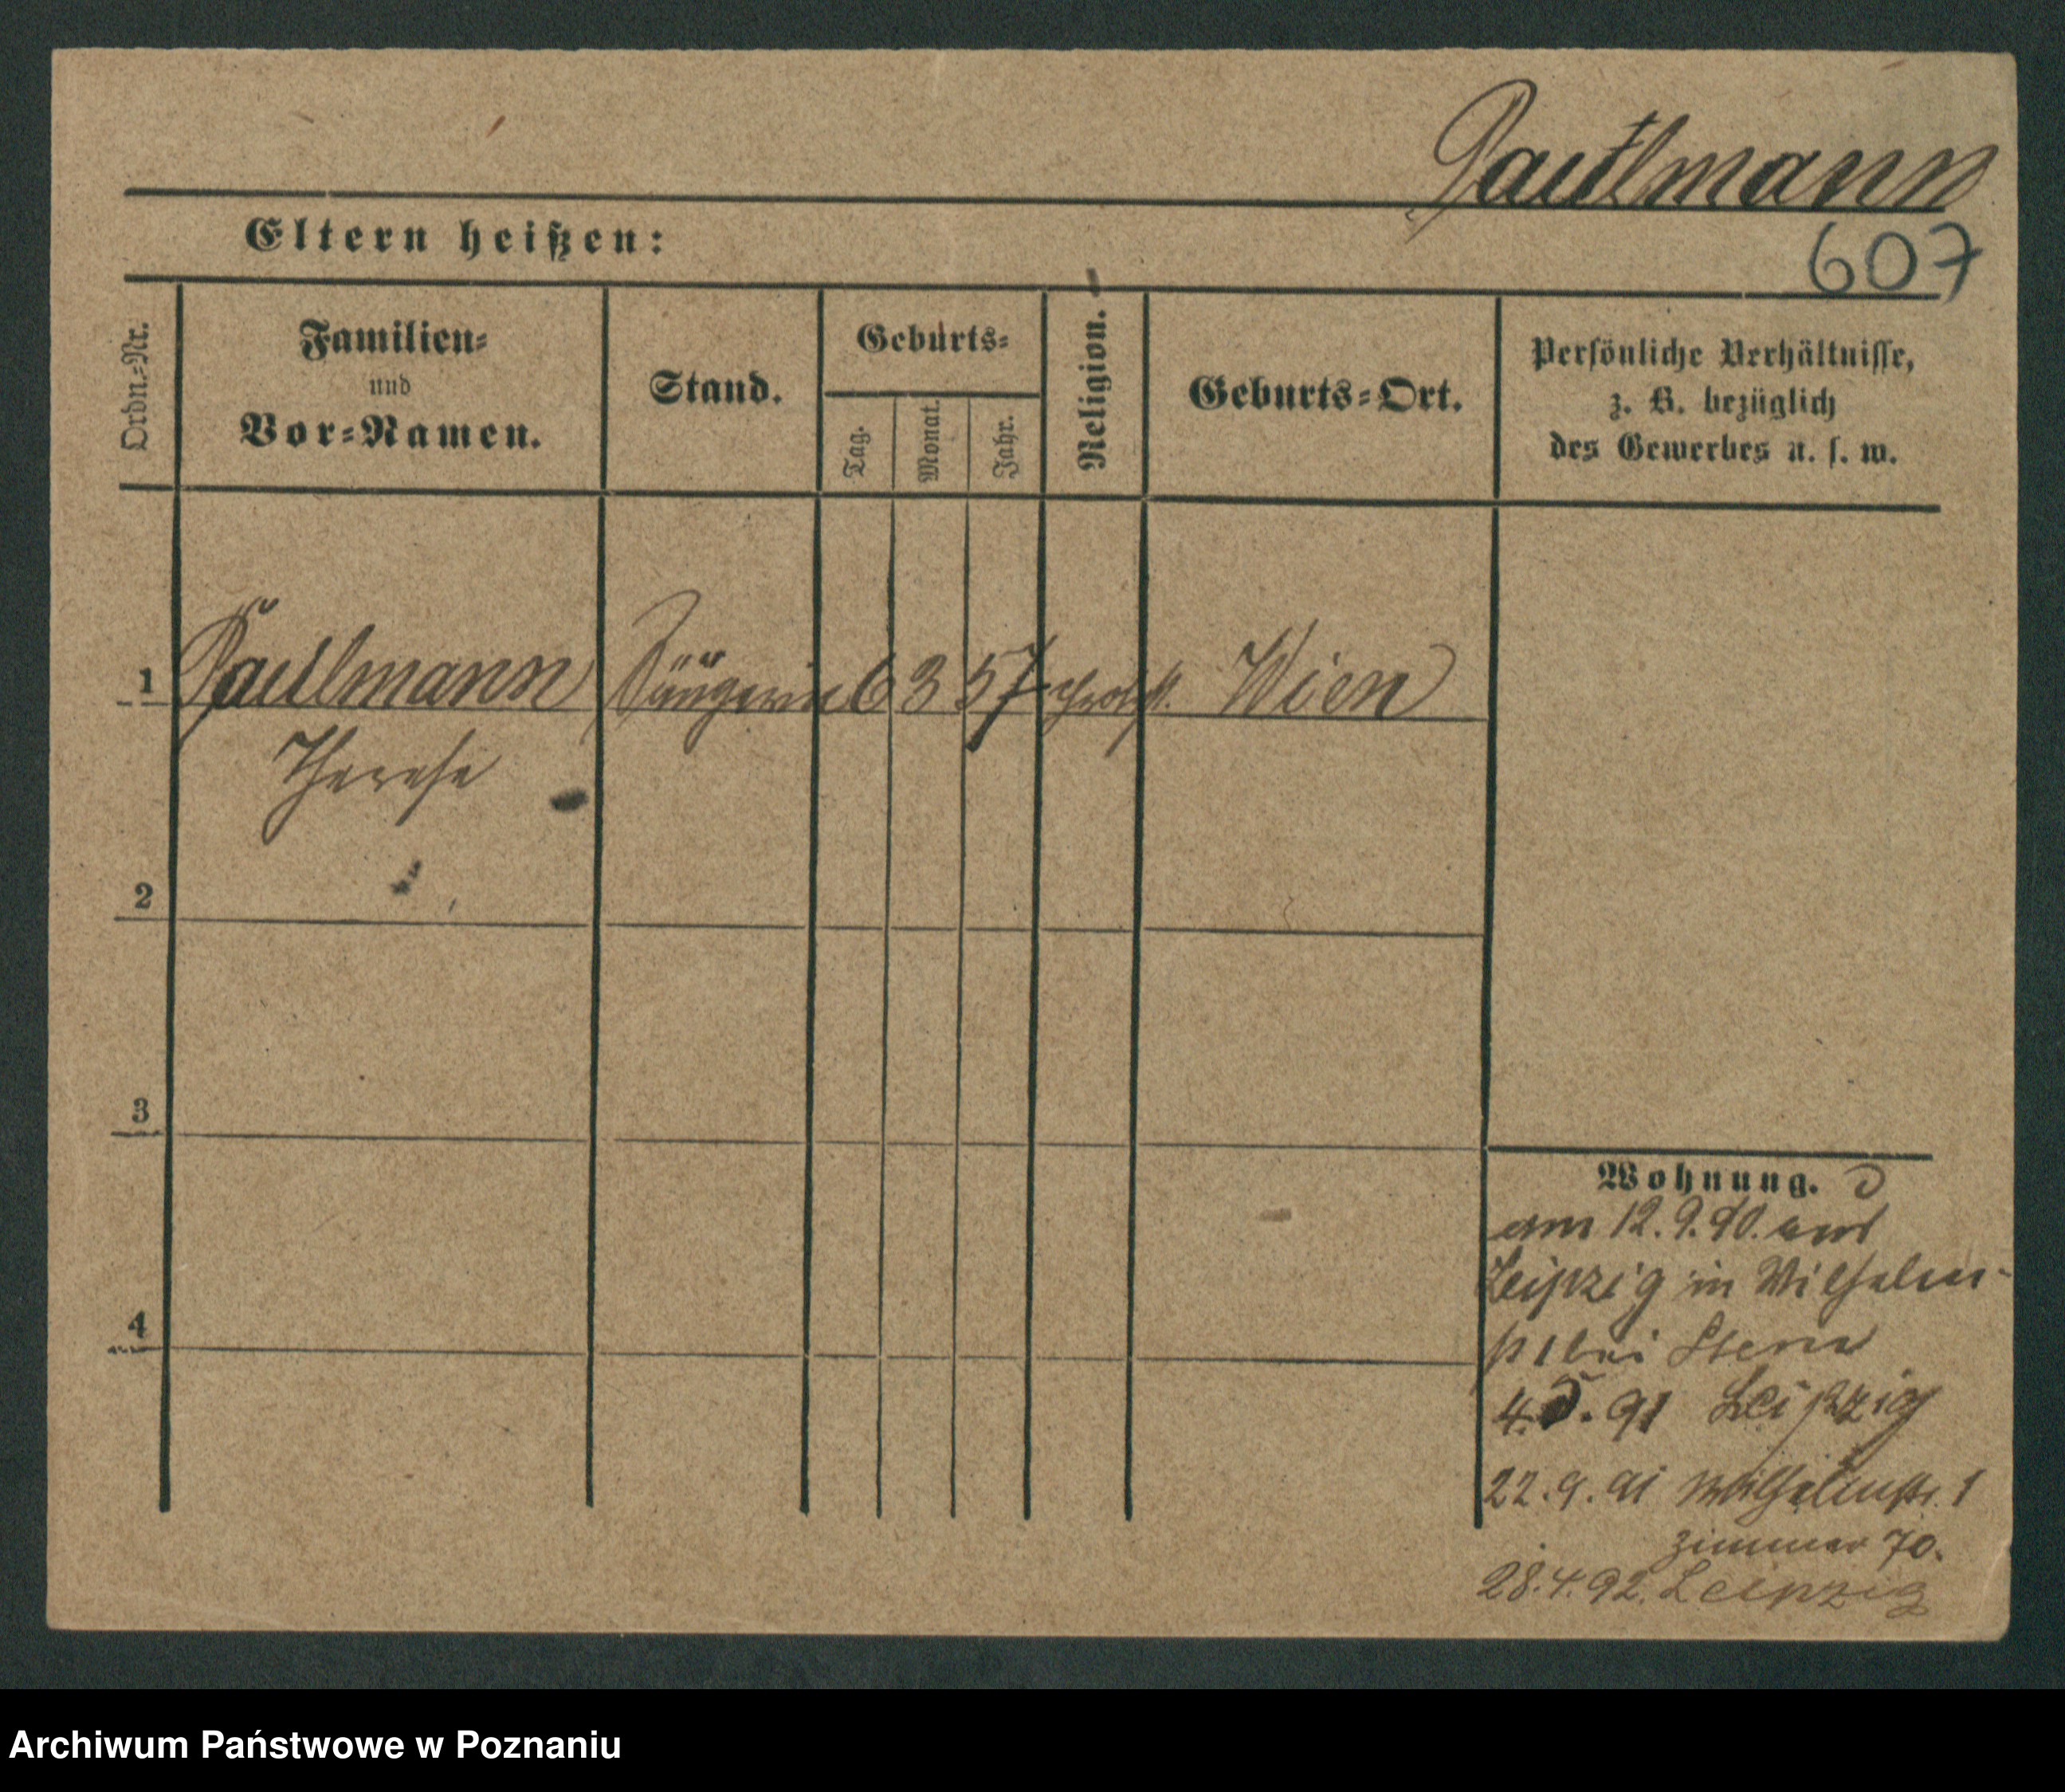 Paulmann
607
Eltern heißen:
Ordn.-Nr.
Familien-
und
Vor-Namen.
Stand.
Geburts-
Tag.
Monat.
Jahr.
Religion.
Geburts-Ort.
Persönliche Verhältnisse,
z. B. bezüglich
des Gewerbes u. s. w.
1 Paulmann Sängerin 6 3 57 Wien
Therese
2
3
4
Wohnung.
am 12.9.90. aus
Leipzig in Wilhelm-
1 bei Stern
4.5.91 Leipzig
22.9.91 Wilhelmstr. 1
Zimmer 70.
28.4.92. Leipzig
Archiwum Państwowe w Poznaniu